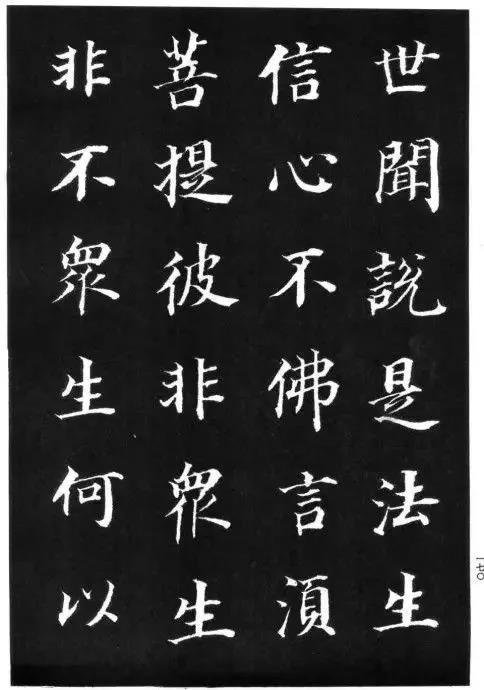 世聞說是法生
信心不佛言須
菩提彼非眾生
非不眾生何以
一七〇